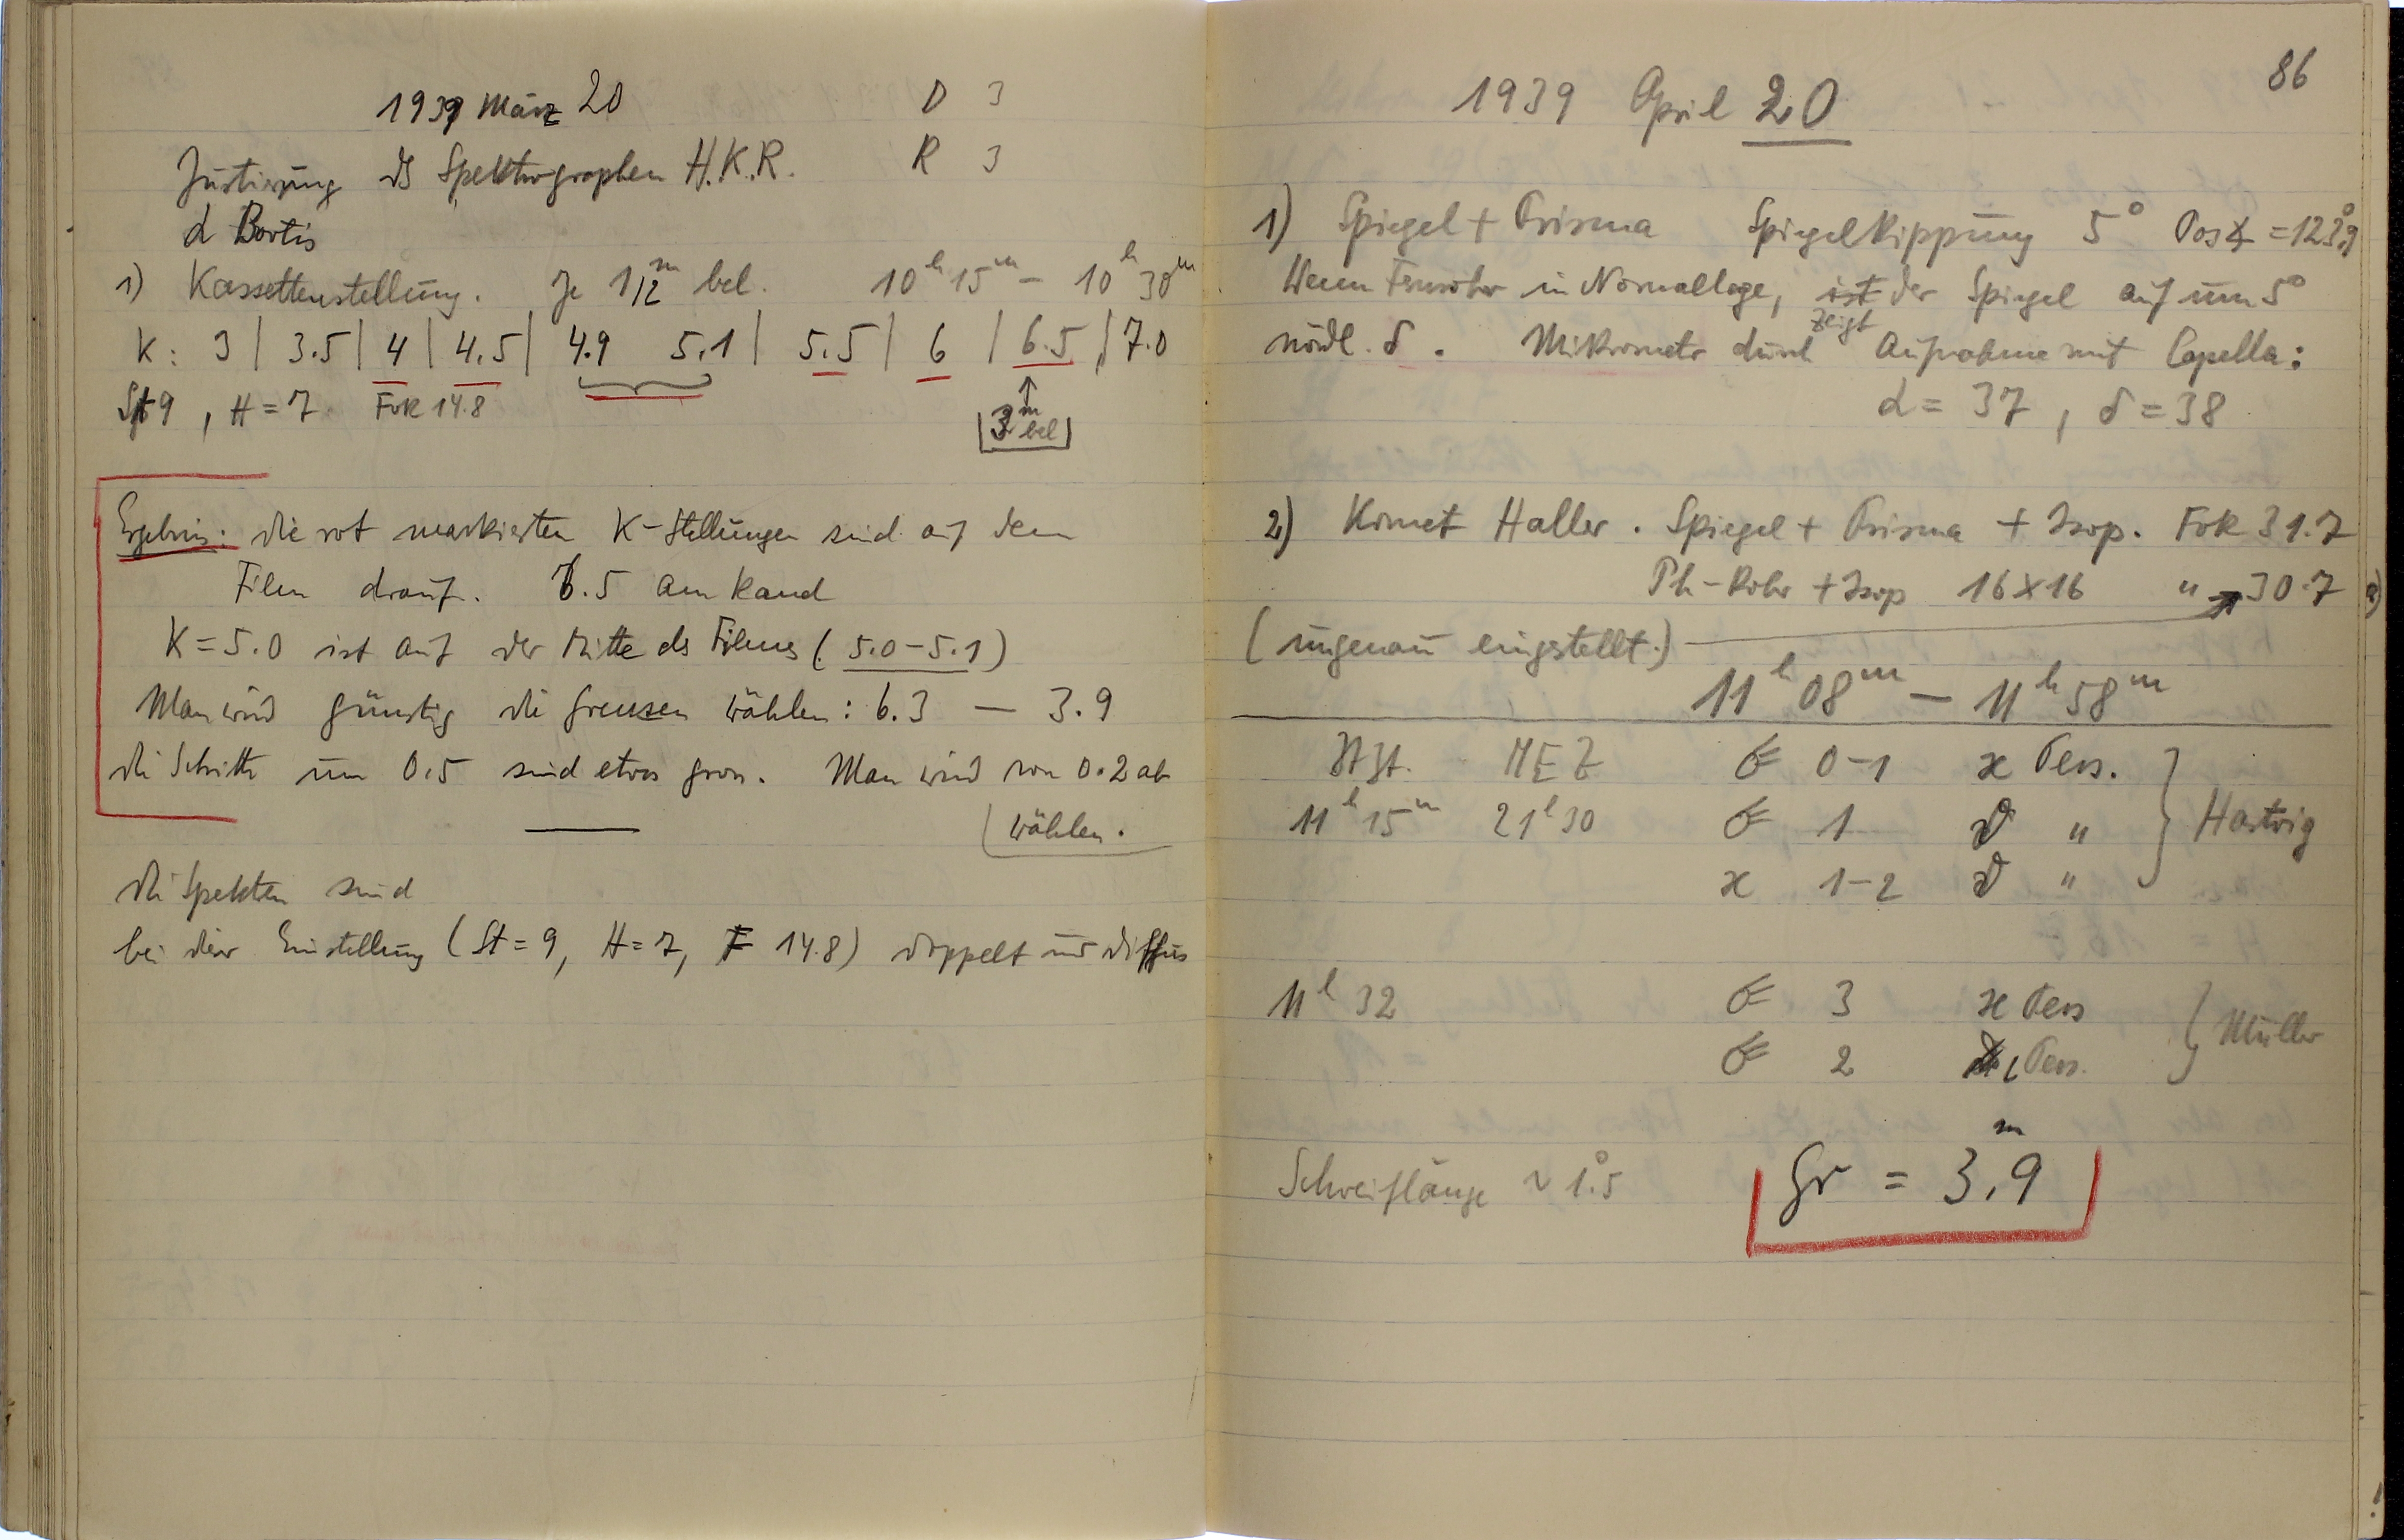 1939 März 20 D 3
Justierung des Spektrographen H.K.R. R 3
α Bootis
1) Kassettenstellung. Je 1 1/2 m bel. 10h 15m – 10h 30m
K: 3 | 3.5 | 4 | 4.5 | 4.9 5.1 | 5.5 | 6 | 6.5 | 7.0
St 9, H = 7 Fok 14.8
3m bel
Ergebnis: die rot markierten K-Stellungen sind auf dem
Film drauf. 6.5 am Rand
K = 5.0 ist auf der Mitte des Films (5.0–5.1)
Man wird günstig die Grenzen wählen: 6.3 — 3.9
die Schritte um 0.5 sind etwas gross. Man wird von 0.2 ab
wählen.
die Spektren sind
bei dieser Einstellung (St = 9, H = 7, F 14.8) doppelt und diffus
86
1939 April 20
1) Spiegel + Prisma Spiegelkippung 5° Pos∡ = 123°,9
Wenn Fernrohr in Normallage, zeigt der Spiegel auf um 5°
nördl. δ. Mikrometer durch Aufnahme mit Capella:
α = 37, δ = 38
2) Komet Haller. Spiegel + Prisma + Isop. Fok 31.7
Ph-Rohr + Isop 16×16 " 30.7
(ungenau eingestellt.)
11h 08m – 11h 58m
St Zt. MEZ ☄ 0–1 ϰ Pers.
11h 15m 21h 30 ☄ 1 ϑ " Hartwig
ϰ 1–2 ϑ "
11h 32 ☄ 3 ϰ Pers Müller
☄ 2 ι Pers.
Schweiflänge ~ 1°.5 Gr = 3m,9